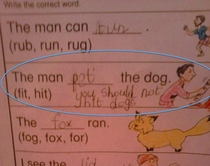 Write the correct word.
The man can run.
(rub, run, rug)
The man pat the dog.
(fit, hit) you should not
hit dogs
The fox ran.
(fog, fox, for)
I see the lid